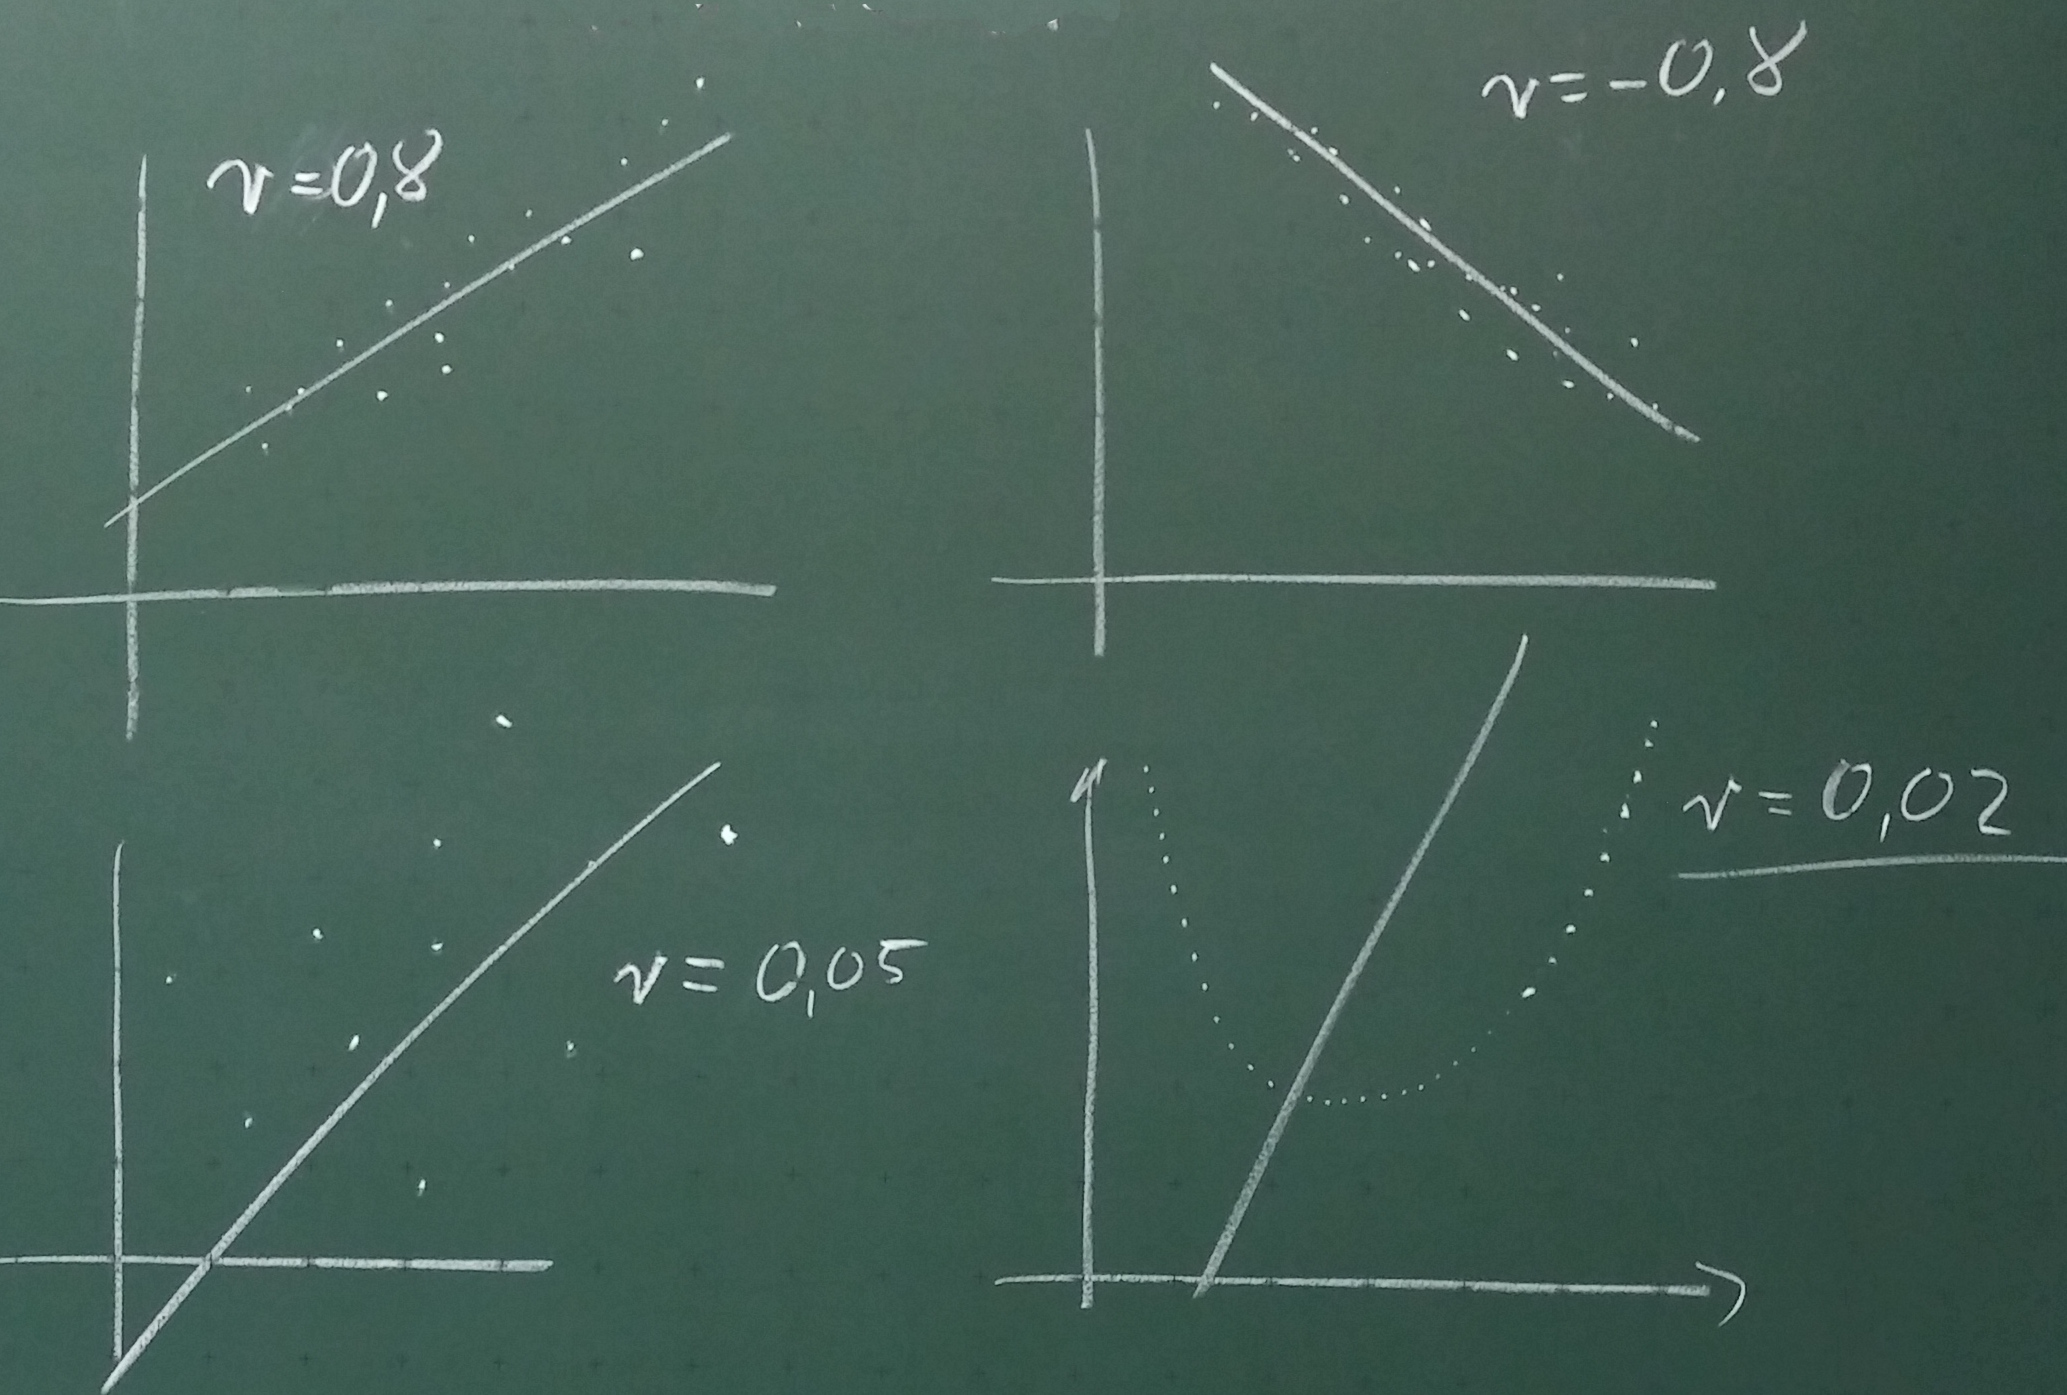 r=0,8
r=-0,8
r=0,05
r=0,02